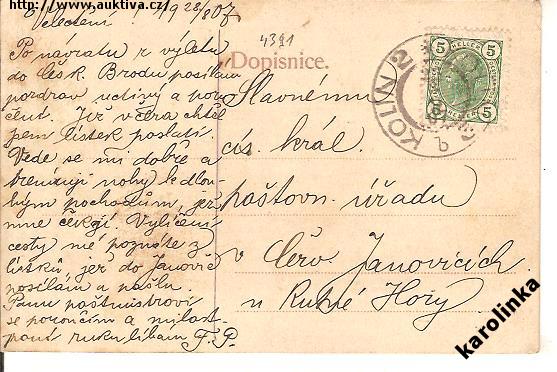 http://www.auktiva.cz/
Velectění! 19 28/8 07
4391
Dopisnice.
Po návratu z výletu
do Česk. Brodu posílám
pozdrav uctivý a
Již včera chtěl
jsem lístek poslati.
Vede se mi dobře a
trenuji nohy k dlou-
hým pochodům, jež
mne čekají. Vylíčení
cesty mé poznáte z
lístků, jež do Janovic
posílám a pošlu.
Panu poštmistrovi
se poroučím a milost-
paní ruku líbám F.P.
Slavnému
cís. král.
poštovn. úřadu
v Červ. Janovicích
u Kutné Hory
KOLÍN
5 HELLER 5
5 5
karolinka